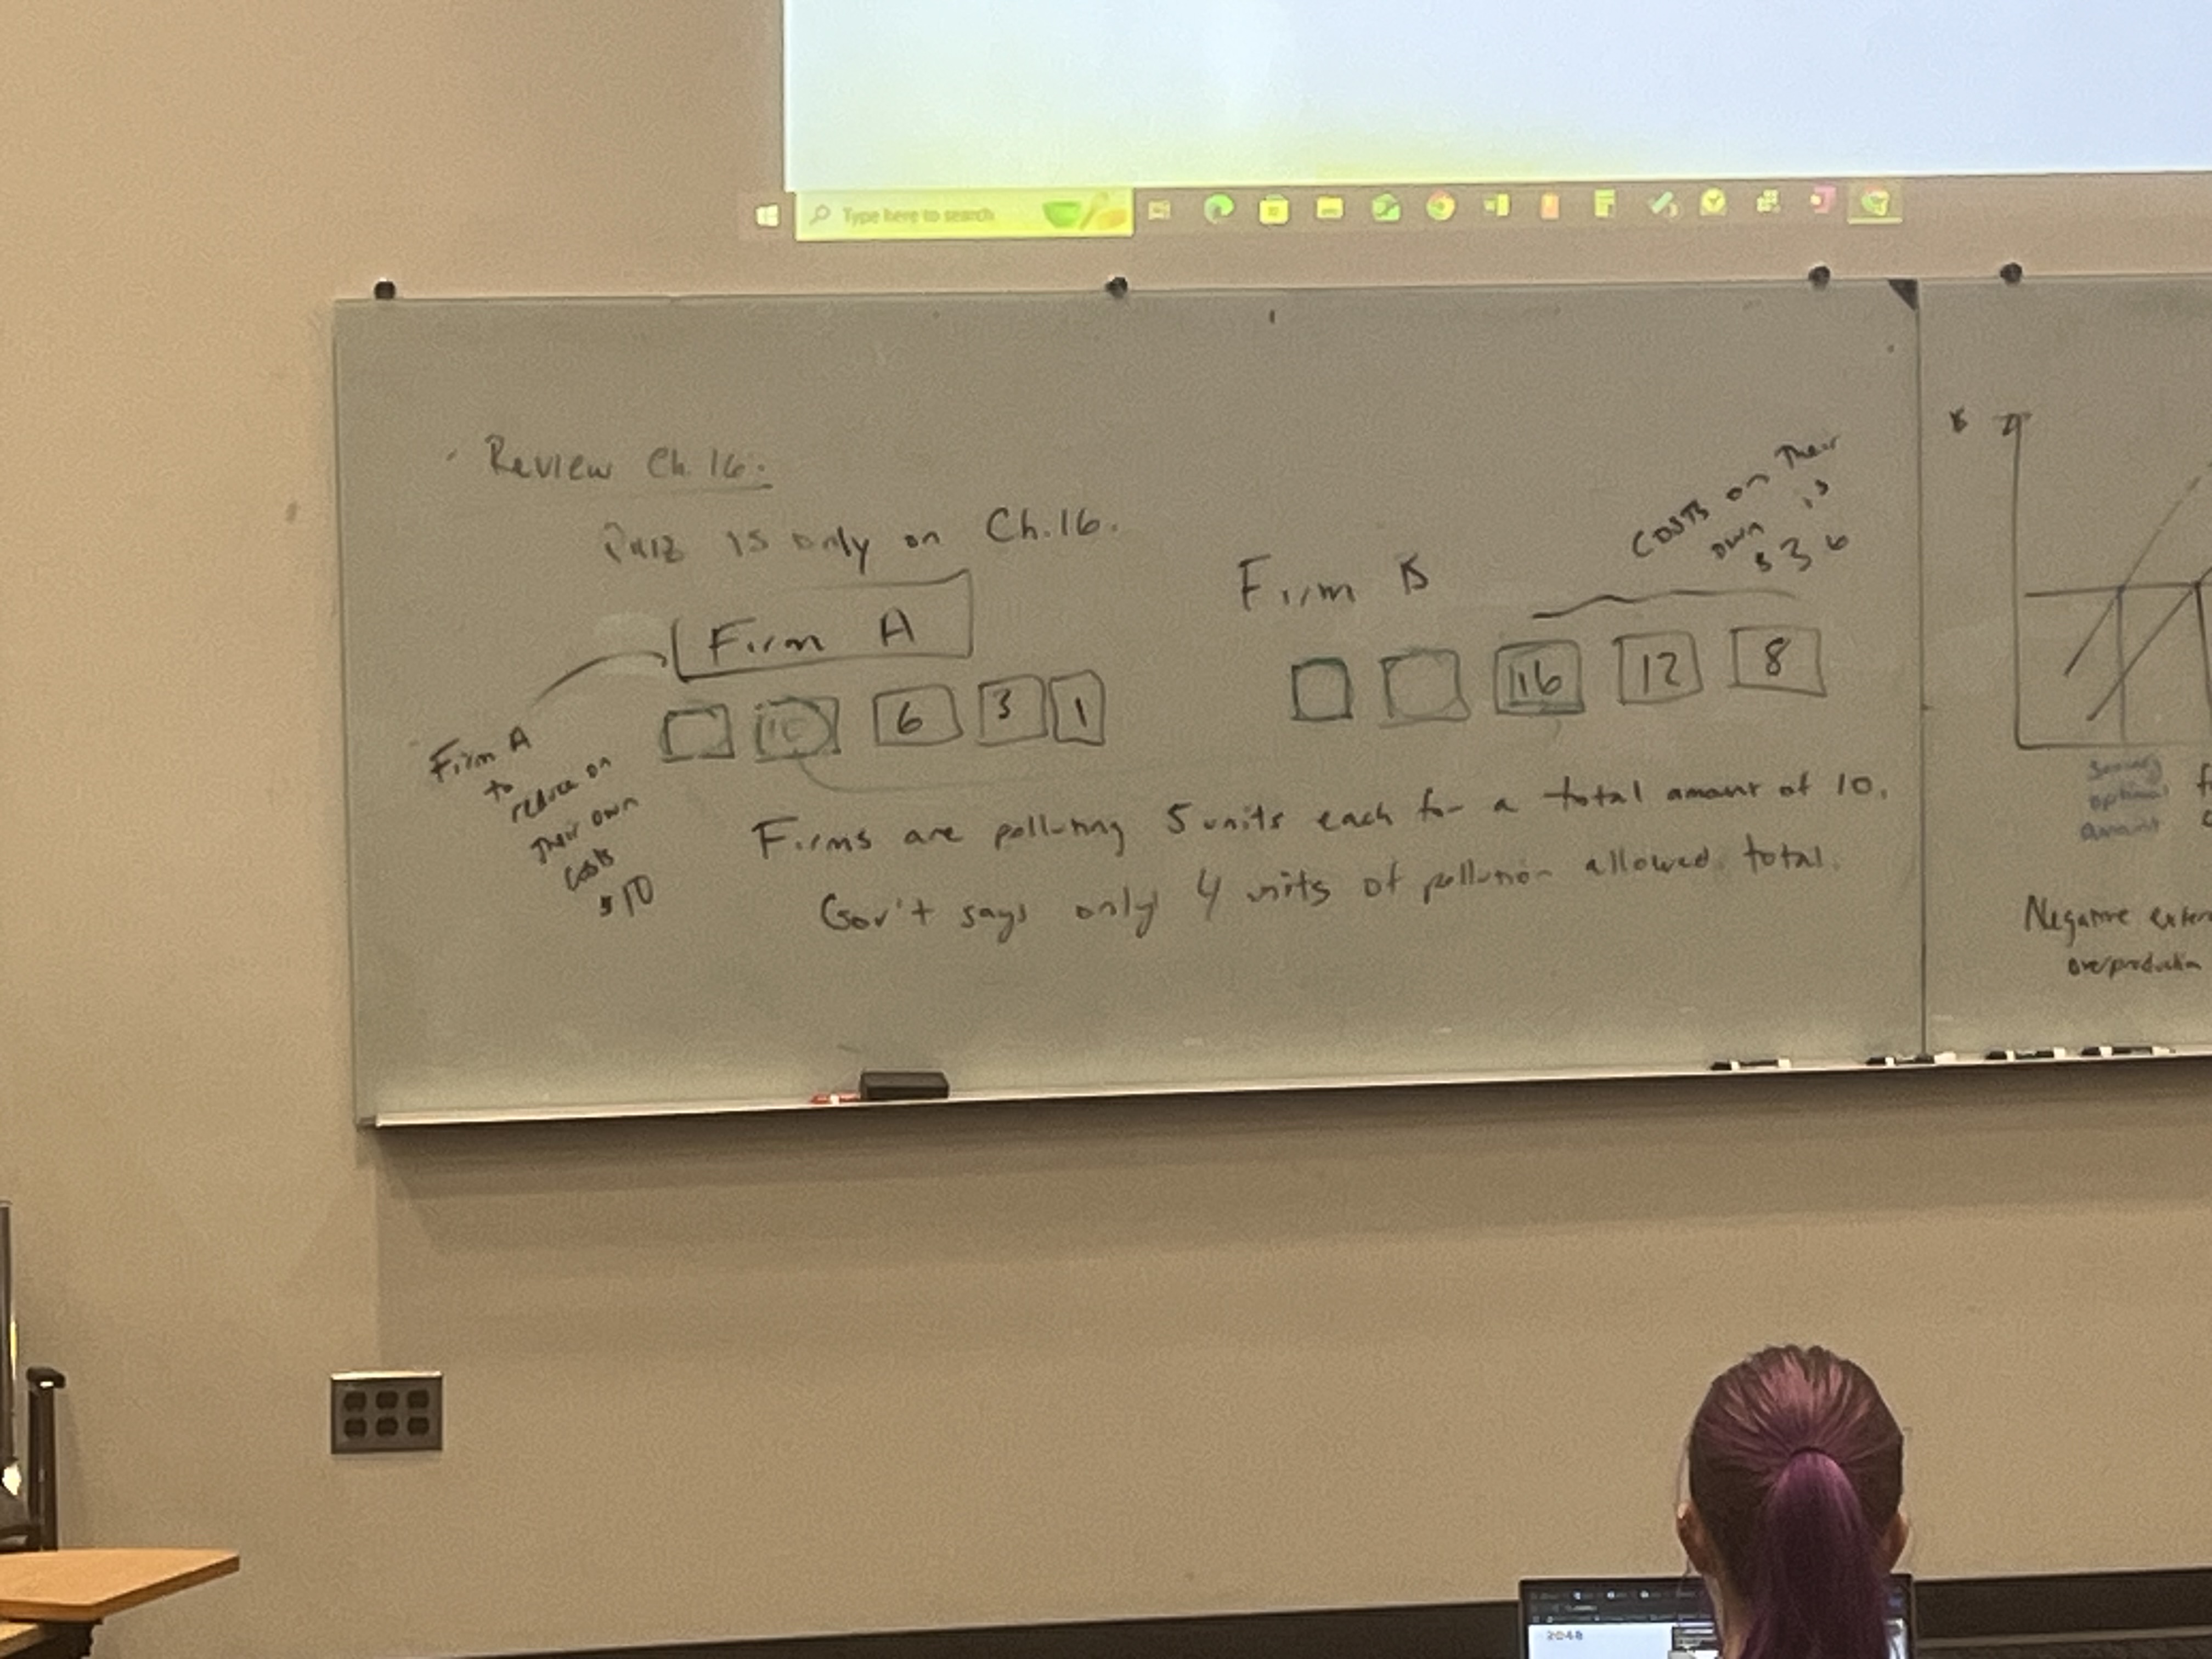 Type here to search
Review Ch. 16:
Quiz is only on Ch.16.
Firm A
6 3 1
Firm A
to
reduce on
their own
costs
$10
Firm B
Costs on their
own is
$36
16 12 8
Firms are polluting 5 units each for a total amount of 10.
Gov't says only 4 units of pollution allowed total.
optimal
amount
Negative extern
overproduction
2048